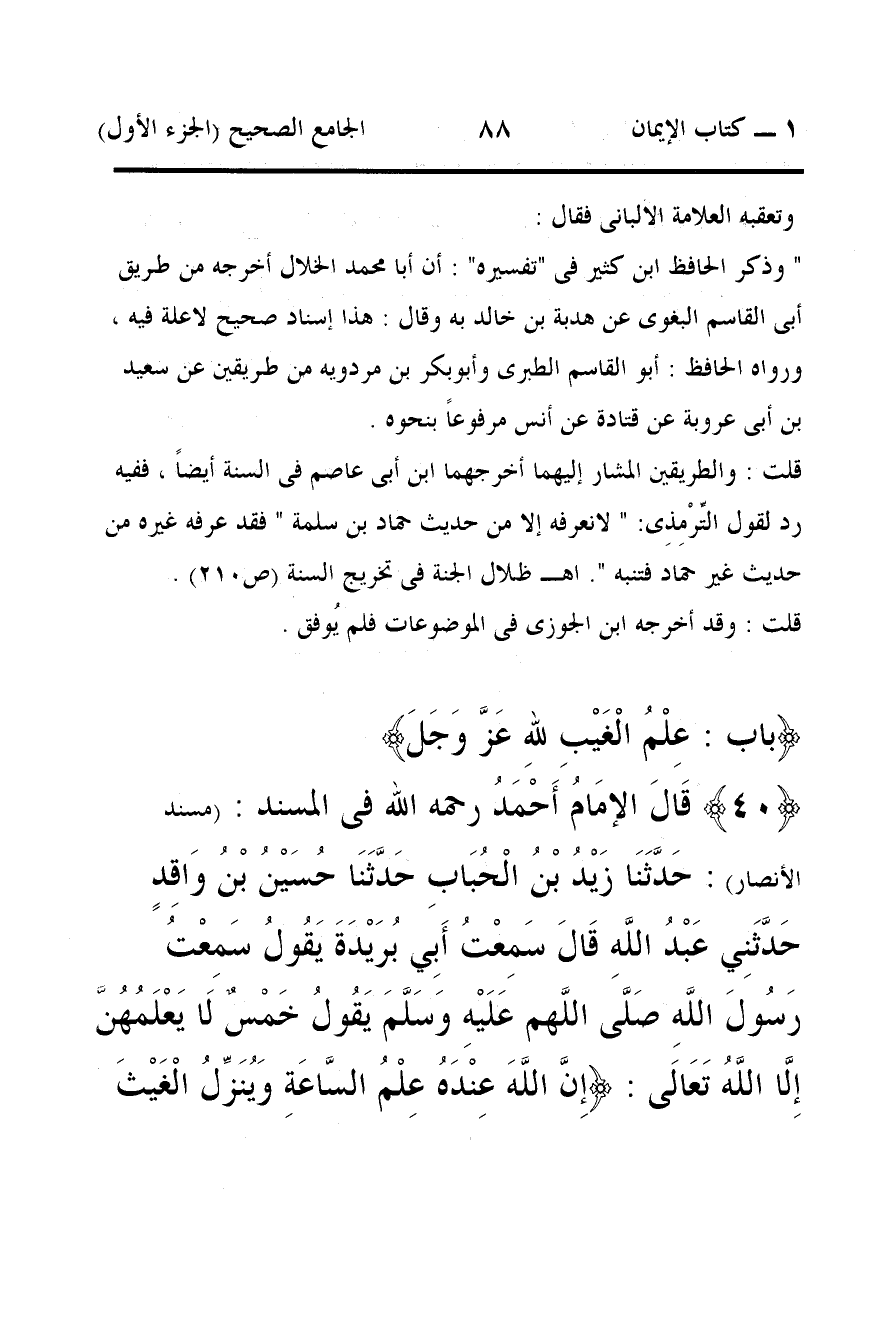 ١ ــ كتاب الإيمان ٨٨ الجامع الصحيح (الجزء الأول)
وتعقبه العلامة الالبانى فقال :
" وذكر الحافظ ابن كثير فى "تفسيره" : أن أبا محمد الخلال أخرجه من طريق
أبى القاسم البغوى عن هدبة بن خالد به وقال : هذا إسناد صحيح لاعلة فيه ،
ورواه الحافظ : أبو القاسم الطبرى وأبوبكر بن مردويه من طريقين عن سعيد
بن أبى عروبة عن قتادة عن أنس مرفوعاً بنحوه .
قلت : والطريقين المشار إليهما أخرجهما ابن أبى عاصم فى السنة أيضاً ، ففيه
رد لقول التِّرْمِذِى: " لانعرفه إلا من حديث حماد بن سلمة " فقد عرفه غيره من
حديث غير حماد فتنبه ". اهــ ظلال الجنة فى تخريج السنة (ص٢١٠) .
قلت : وقد أخرجه ابن الجوزى فى الموضوعات فلم يُوفق .
﴿باب : عِلْمُ الْغَيْبِ للهِ عَزَّ وَجَلَ﴾
﴿٤٠﴾ قَالَ الإِمَامُ أَحْمَدُ رحمه الله فى المسند : (مسند
الأنصار) : حَدَّثَنَا زَيْدُ بْنُ الْحُبَابِ حَدَّثَنَا حُسَيْنُ بْنُ وَاقِدٍ
حَدَّثَنِي عَبْدُ اللَّهِ قَالَ سَمِعْتُ أَبِي بُرَيْدَةَ يَقُولُ سَمِعْتُ
رَسُولَ اللَّهِ صَلَّى اللَّهم عَلَيْهِ وَسَلَّمَ يَقُولُ خَمْسٌ لَا يَعْلَمُهُنَّ
إِلَّا اللَّهُ تَعَالَى : ﴿إِنَّ اللَّهَ عِنْدَهُ عِلْمُ السَّاعَةِ وَيُنَزِّلُ الْغَيْثَ